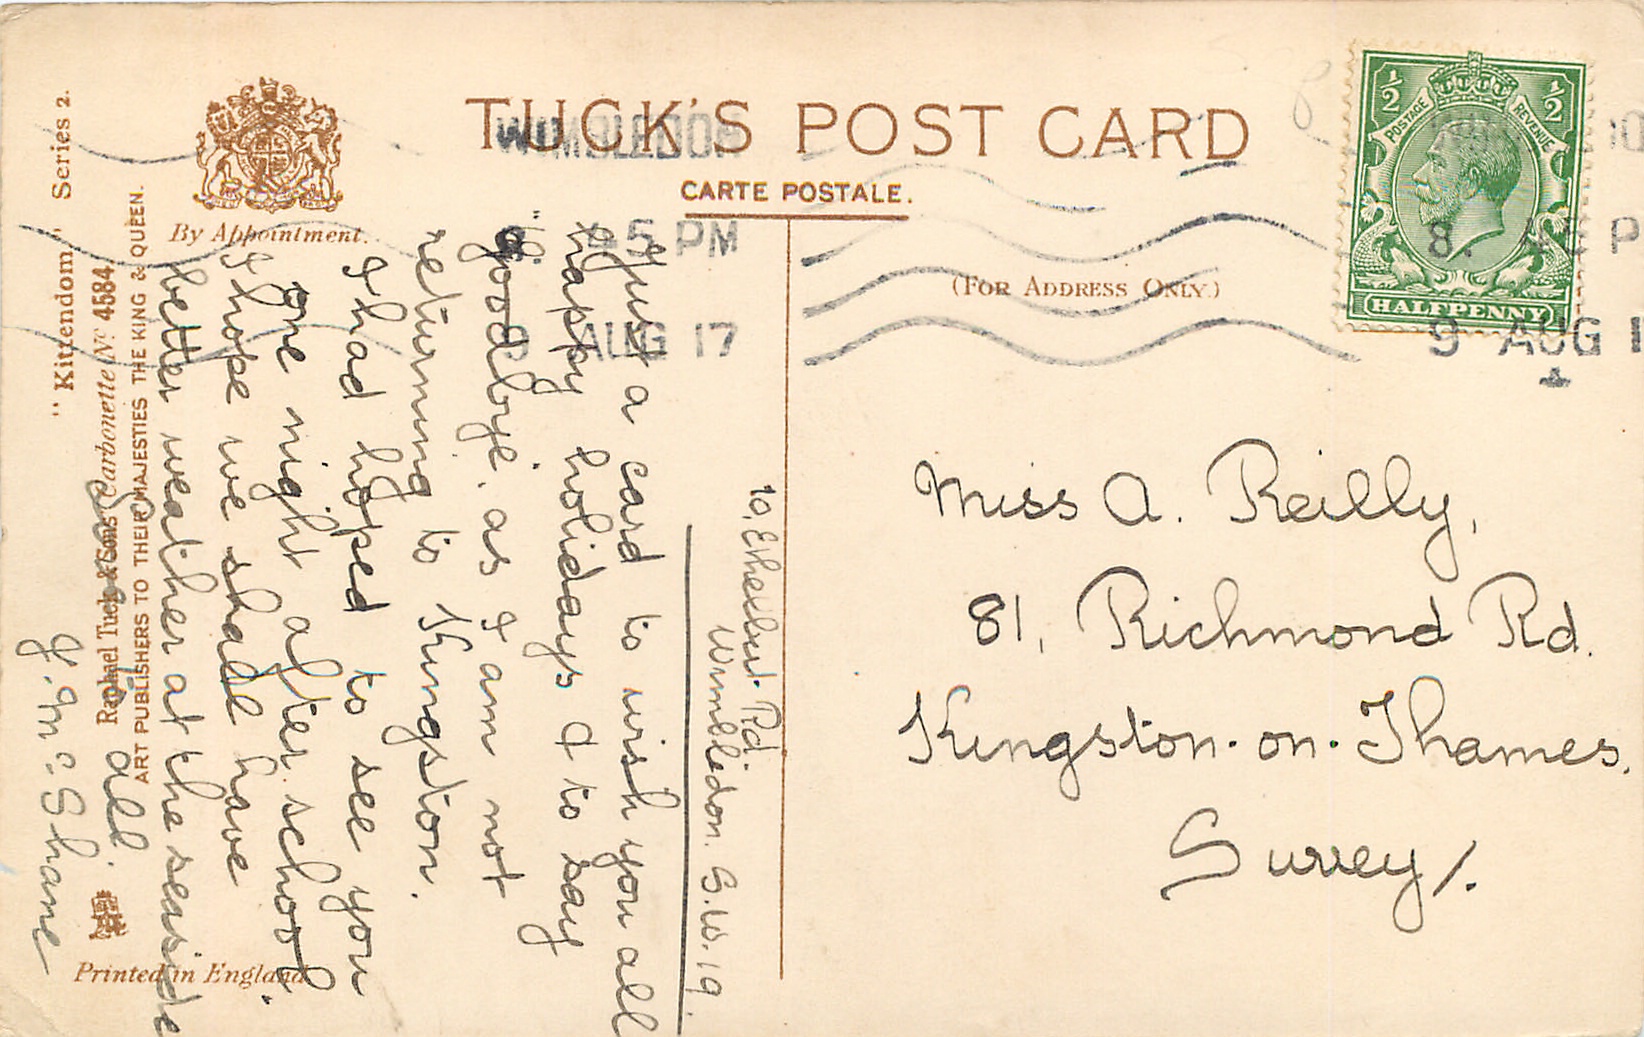 TUCK'S POST CARD
CARTE POSTALE.
(FOR ADDRESS ONLY.)
By Appointment.
"Kittendom," Series 2.
Raphael Tuck & Sons' "Carbonette" No. 4584
ART PUBLISHERS TO THEIR MAJESTIES THE KING & QUEEN.
Printed in England
WIMBLEDON
8. 45 PM
9 AUG 17
POSTAGE
REVENUE
½
½
HALFPENNY
8. 45 P
9 AUG 1
10, Ethelbert Rd.
Wimbledon. S.W. 19.
Just a card to wish you all
happy holidays & to say
"goodbye", as I am not
returning to Kingston.
I had hoped to see you
one night after school.
I hope we shall have
better weather at the seaside
all.
J. Mc. Shane
Miss A. Reilly,
81, Richmond Rd.
Kingston-on-Thames.
Surrey/.